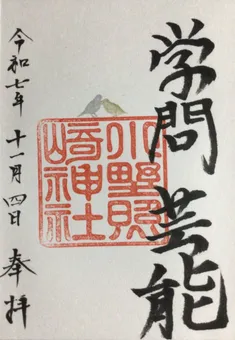 学問 芸能
小野照
崎神社
奉拝
令和七年 十一月 四日